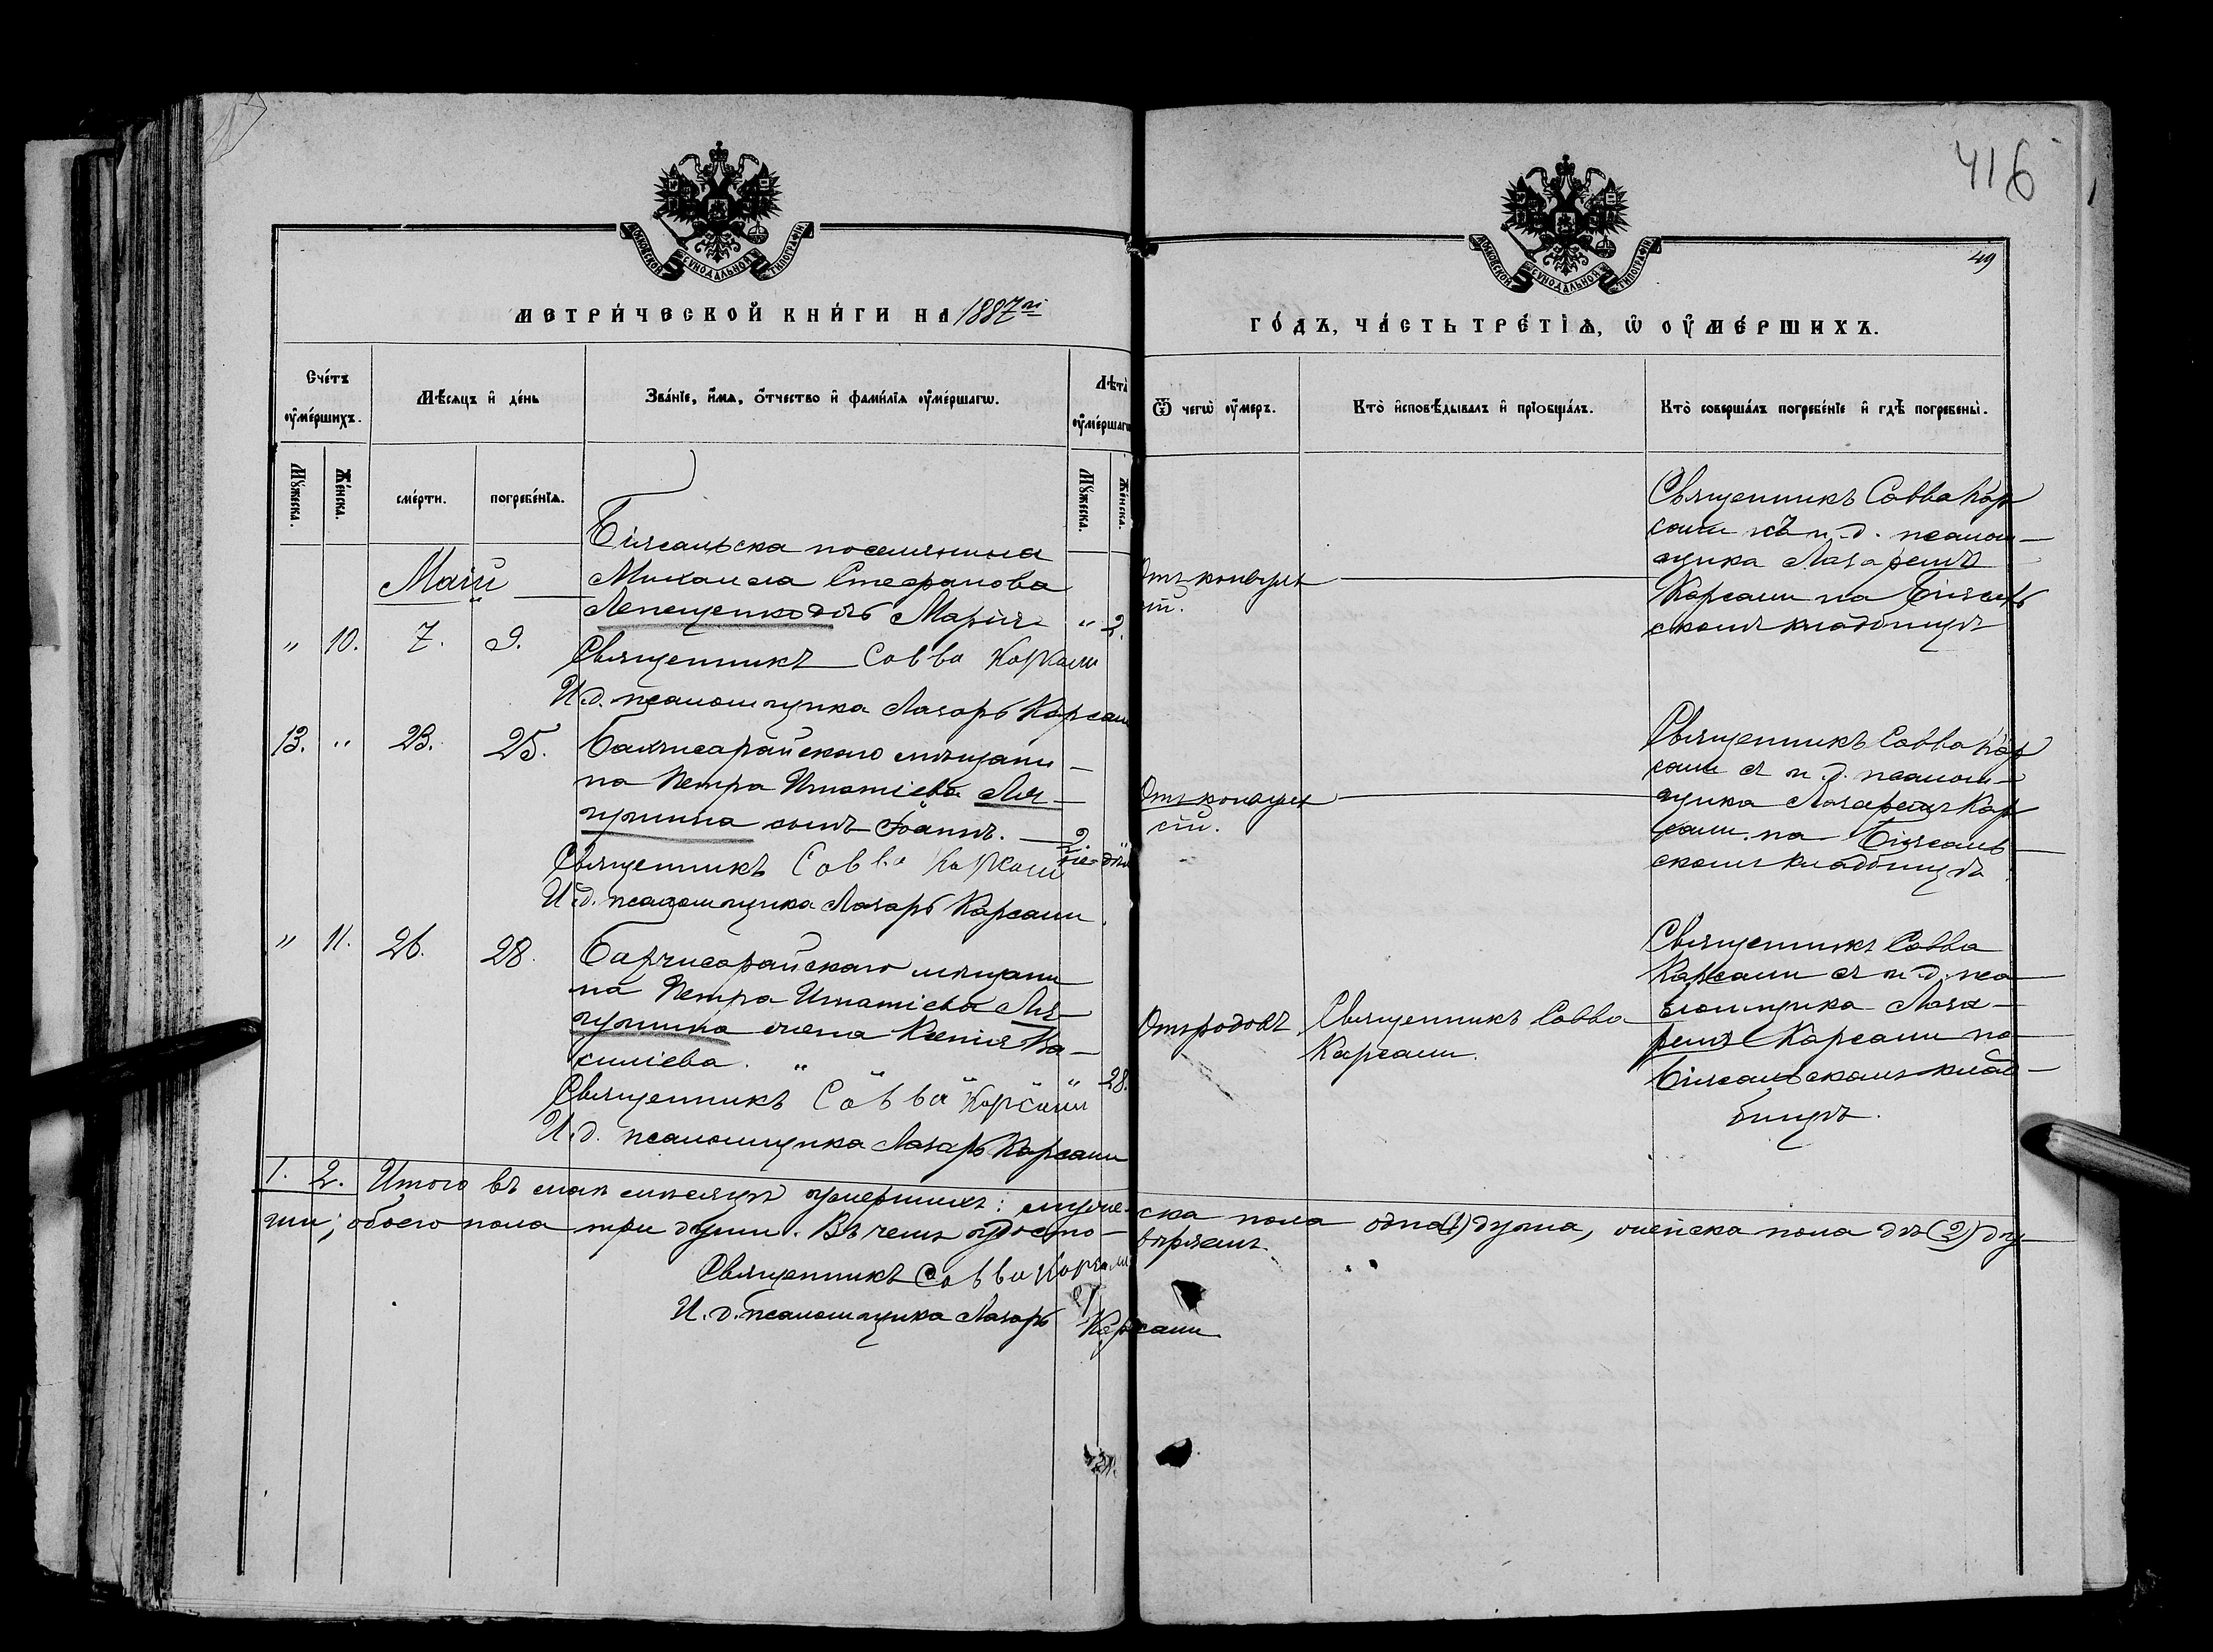 416
49
МОСКОВСКОЙ СѴНОДАЛЬНОЙ ТИПОГРАФІИ
МОСКОВСКОЙ СѴНОДАЛЬНОЙ ТИПОГРАФІИ
МЕТРИ́ЧЕСКОЙ КНИ́ГИ НА 1887й
ГО́ДЪ, ЧА́СТЬ ТРЕ́ТІѦ, Ѡ ОУ҆МЕ́РШИХЪ.
Сче́тъ оу҆ме́ршихъ.
Мꙋ́жеска.
Же́нска.
Мѣ́сяцъ и҆ де́нь
сме́рти.
погребе́нїѧ.
Зва́нїе, и҆́мѧ, ѻ҆́тчество и҆ фами́лїѧ оу҆ме́ршагѡ.
Лѣта̀ оу҆ме́ршагѡ
Мꙋ́жеска.
Же́нска.
Ѿ чегѡ̀ оу҆́меръ.
Кто̀ и҆сповѣ́дывалъ и҆ прїобща́лъ.
Кто̀ соверша́лъ погребе́нїе и҆ гдѣ̀ погребены̀.
Май
" 10. 7. 9.
Біясальска поселянина
Михаила Стефанова
Лепещенко дчь Марія " 2.
Священникъ Савва Карсани
И.д. псаломщика Лазарь Карсани
Священникъ Савва Кар
сани съ и.д. псалом-
щика Лазаремъ
Карсани на Біясаль
скомъ кладбищѣ
13. " 23. 25.
Бахчисарайскаго мѣщани-
на Петра Игнатіева
сынъ Іоаннъ. 2
Священникъ Савва Карсани
И.д. псаломщика Лазарь Карсани
Священникъ Савва Кар
сани съ и.д. псалом-
щика Лазаремъ Кар
сани на Біясаль-
скомъ кладбищѣ
" 11. 26. 28.
Бахчисарайскаго мѣщани
на Петра Игнатіева
жена Ксенія Ва-
силіева. " " " " 28.
Священникъ Савва Карсани
И.д. псаломщика Лазарь Карсани
Отъ родовъ.
Священникъ Савва
Карсани.
Священникъ Савва
Карсани съ и.д. пса-
ломщика Лаза-
ремъ Карсани на
Біясальскомъ клад-
бищѣ.
1. 2. Итого въ маѣ мѣсяцѣ умершихъ: муже-ска пола одна (1) душа, женска пола двѣ (2) ду-
ши; обоего пола три души. Въ чемъ удосто-вѣряемъ
Священникъ Савва Карсани
И.д. псаломщика Лазарь Карсани